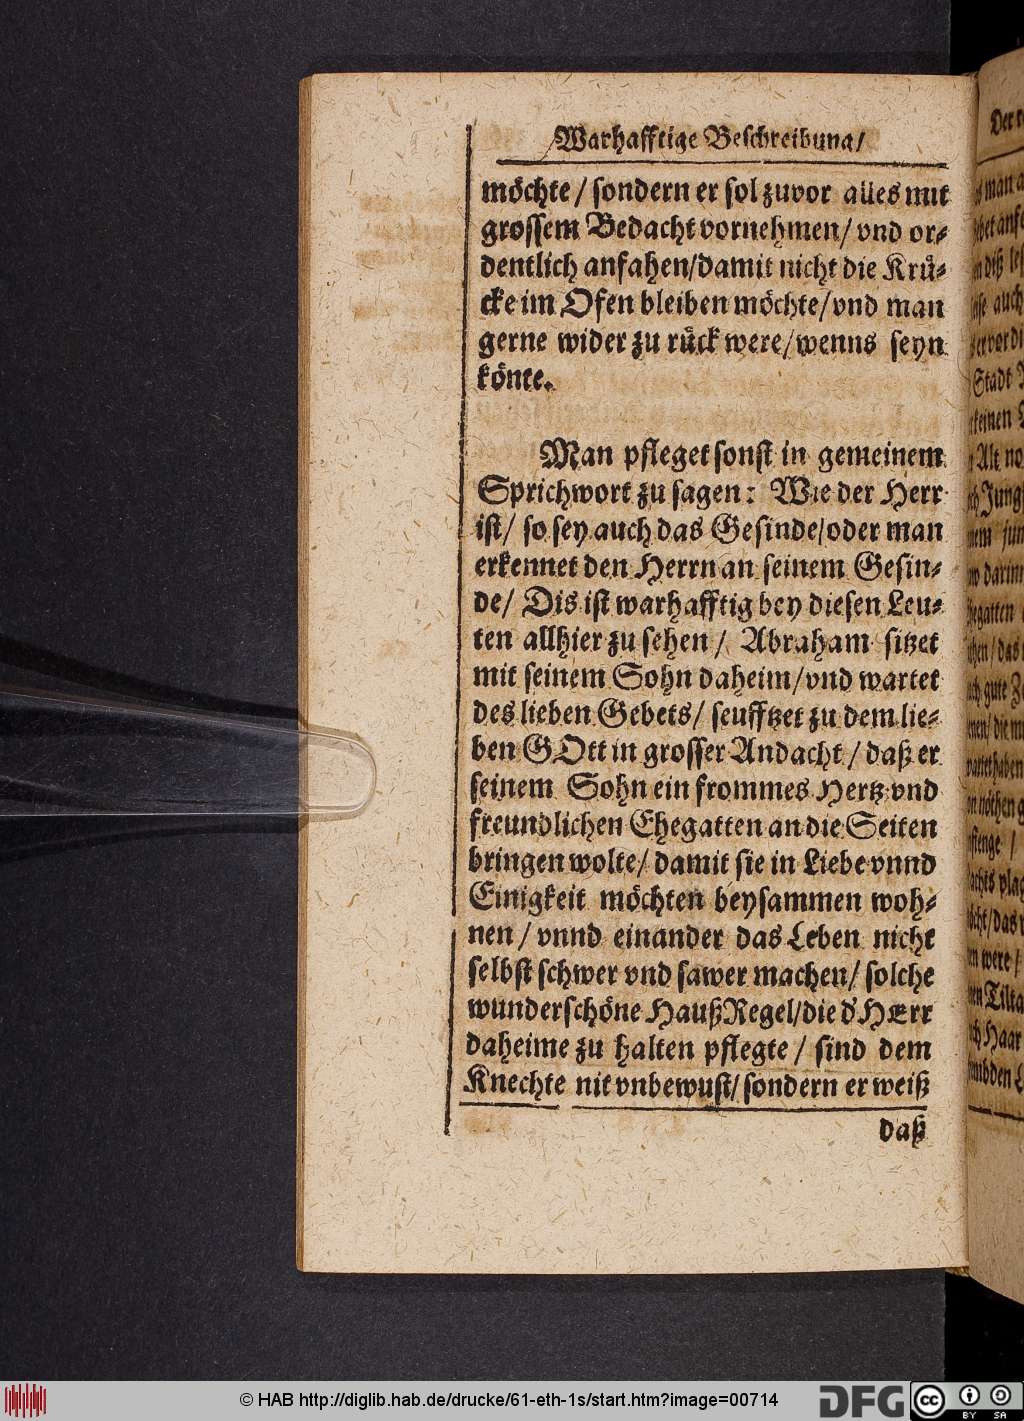 Warhafftige Beschreibung/
möchte / sondern er sol zuvor alles mit
grossem Bedacht vornehmen / vnd or⸗
dentlich anfahen/damit nicht die Krü⸗
cke im Ofen bleiben möchte/vnd man
gerne wider zu rück were/wenns seyn
könte.
Man pfleget sonst in gemeinem
Sprichwort zu sagen: Wie der Herr
ist/ so sey auch das Gesinde/oder man
erkennet den Herrn an seinem Gesin⸗
de/ Dis ist warhafftig bey diesen Leu⸗
ten allhier zu sehen / Abraham sitzet
mit seinem Sohn daheim/vnd wartet
des lieben Gebets/ seufftzet zu dem lie⸗
ben GOtt in grosser Andacht / daß er
seinem Sohn ein frommes Hertz vnd
freundlichen Ehegatten an die Seiten
bringen wolte/ damit sie in Liebe vnnd
Einigkeit möchten beysammen woh⸗
nen / vnnd einander das Leben nicht
selbst schwer vnd sawer machen/ solche
wunderschöne HaußRegel/die d' HErr
daheime zu halten pflegte / sind dem
Knechte nit vnbewust/ sondern er weiß
daß
© HAB http://diglib.hab.de/drucke/61-eth-1s/start.htm?image=00714
DFG
cc BY SA